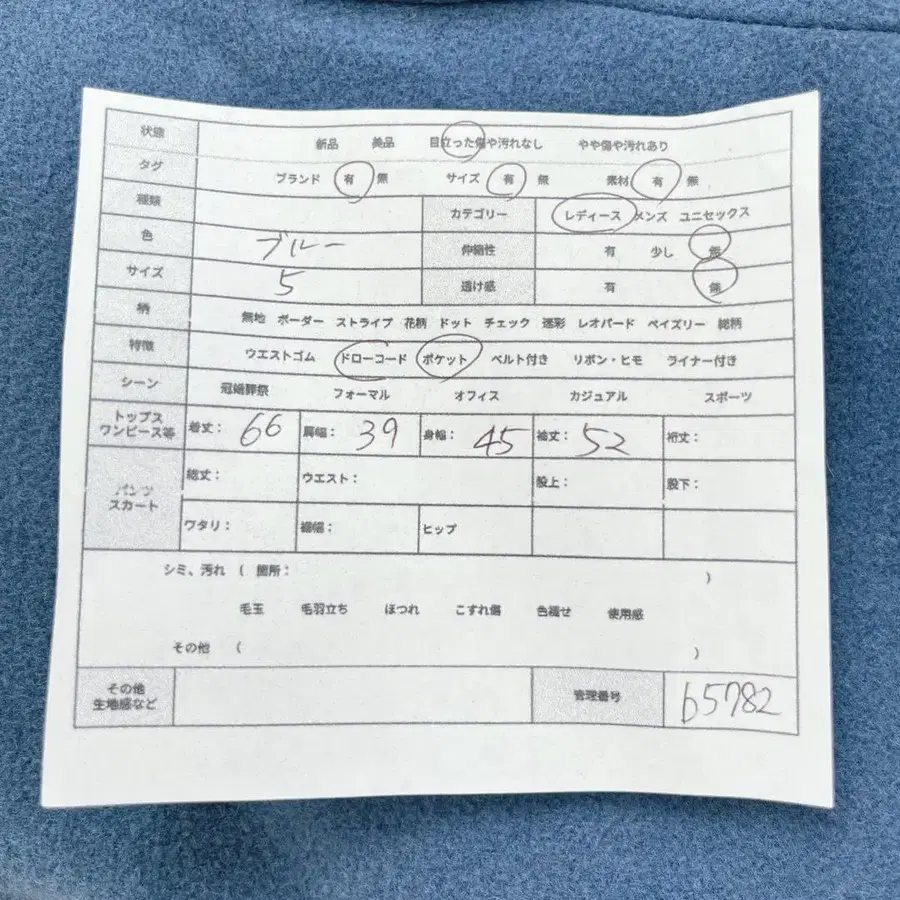 状態 新品 美品 目立った傷や汚れなし やや傷や汚れあり
タグ ブランド 有 無 サイズ 有 無 素材 有 無
種類 カテゴリー レディース メンズ ユニセックス
色 ブルー 伸縮性 有 少し 無
サイズ 5 透け感 有 無
柄 無地 ボーダー ストライプ 花柄 ドット チェック 迷彩 レオパード ペイズリー 総柄
特徴 ウエストゴム ドローコード ポケット ベルト付き リボン・ヒモ ライナー付き
シーン 冠婚葬祭 フォーマル オフィス カジュアル スポーツ
トップス
ワンピース等 着丈: 66 肩幅: 39 身幅: 45 袖丈: 52 裄丈:
パンツ
スカート 総丈: ウエスト: 股上: 股下:
ワタリ: 裾幅: ヒップ
シミ、汚れ ( 箇所: )
毛玉 毛羽立ち ほつれ こすれ傷 色褪せ 使用感
その他 ( )
その他
生地感など 管理番号 b5782